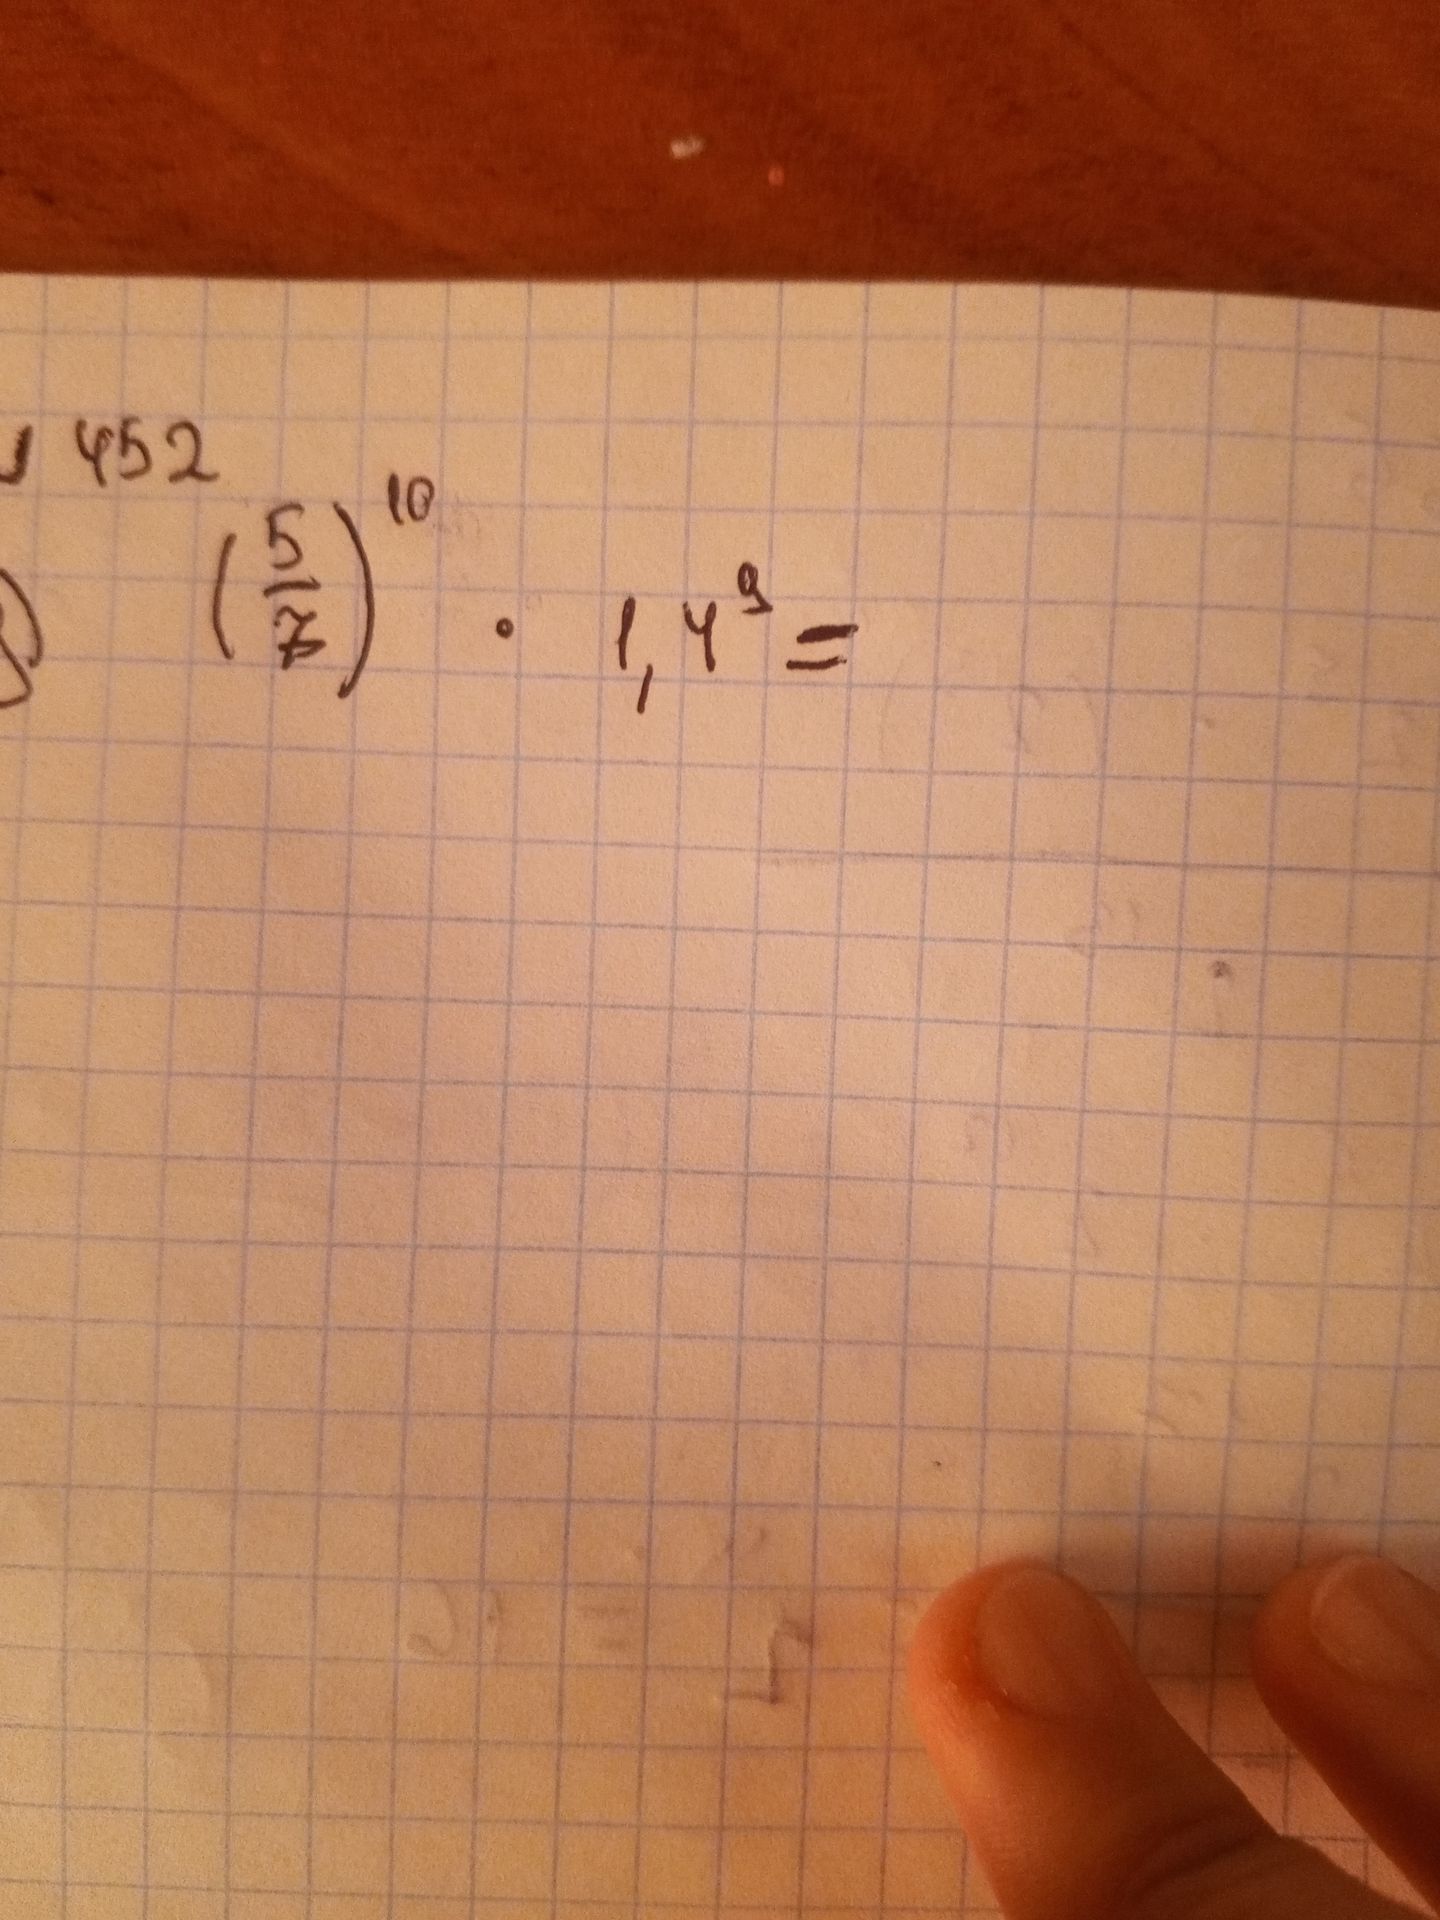 452
(5/7)^10 · 1,4^9 =